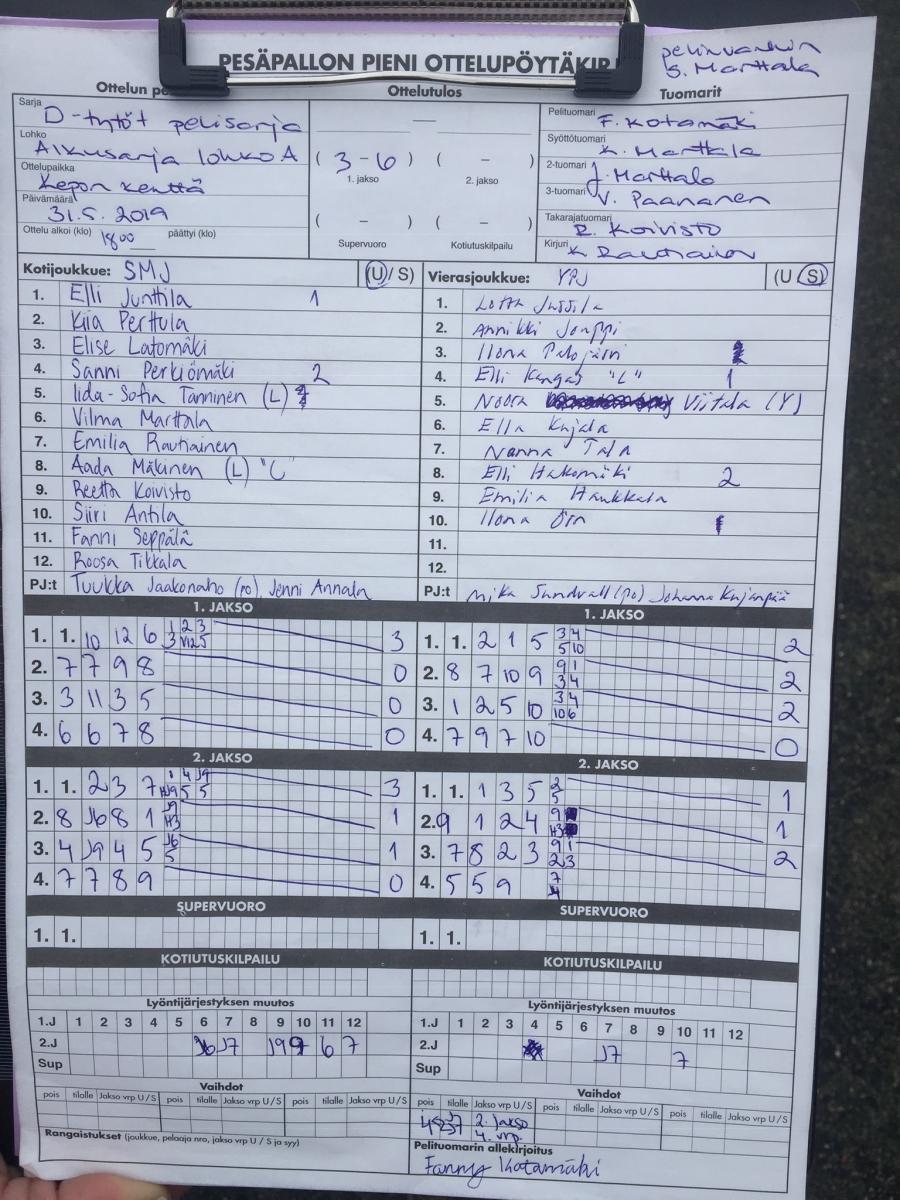 PESÄPALLON PIENI OTTELUPÖYTÄKIR
S. Marttala
Ottelun pe
Ottelutulos
Tuomarit
Sarja D-tytöt pelisarja
Lohko Alkusarja lohko A
Ottelupaikka Kepon kenttä
Päivämäärä 31.5.2019
Ottelu alkoi (klo) 18 00 päättyi (klo)
—
( 3 - 6 ) ( - )
1. jakso 2. jakso
( - ) ( - )
Supervuoro Kotiutuskilpailu
Pelituomari F. Kotamäki
Syöttötuomari K. Marttala
2-tuomari J. Marttala
3-tuomari V. Paananen
Takarajatuomari R. Koivisto
Kirjuri K Rautiainen
Kotijoukkue: SMJ (U / S)
1. Elli Junttila 1
2. Kiia Perttula
3. Elise Latomäki
4. Sanni Perkiömäki 2
5. Iida-Sofia Tanninen (L)
6. Vilma Marttala
7. Emilia Rautiainen
8. Aada Mäkinen (L) "C"
9. Reetta Koivisto
10. Siiri Antila
11. Fanni Seppälä
12. Roosa Tikkala
PJ:t Tuukka Jaakonaho (po) Jenni Annala
Vierasjoukkue: YPJ (U / S)
1. Lotta Jussila
2. Annikki Jouppi
3. Ilona
4. Elli Kangas "L" 1
5. Noora Viitala (Y)
6. Ella Kujala
7. Nanna Tala
8. Elli Hakomäki 2
9. Emilia Haukkala
10. Ilona
11.
12.
PJ:t Mika Sundvall (po) Johanna Kujanpää
1. JAKSO
1. 1. 10 12 6 1 2 3 3
2. 7 7 9 8 0
3. 3 11 3 5 0
4. 6 6 7 8 0
1. JAKSO
1. 1. 2 1 5 3 4 2
5 10
2. 8 7 10 9 9 1 2
3 4
3. 1 2 5 10 3 4 2
10 6
4. 7 9 7 10 0
2. JAKSO
1. 1. 2 3 7 1 4 J9 3
2. 8 J6 8 1 J9 1
H3
3. 4 J9 4 5 J6 1
5
4. 7 7 8 9 0
2. JAKSO
1. 1. 1 3 5 2 1
5
2. 9 1 2 4 9 1
H3
3. 7 8 2 3 9 1 2
2 3
4. 5 5 9 7
SUPERVUORO
1. 1.
SUPERVUORO
1. 1.
KOTIUTUSKILPAILU
KOTIUTUSKILPAILU
Lyöntijärjestyksen muutos
1.J 1 2 3 4 5 6 7 8 9 10 11 12
2.J J6 J7 J9 9 6 7
Sup
Lyöntijärjestyksen muutos
1.J 1 2 3 4 5 6 7 8 9 10 11 12
2.J J7 7
Sup
Vaihdot
pois tilalle Jakso vrp U / S pois tilalle Jakso vrp U / S pois tilalle Jakso vrp U / S
Rangaistukset (joukkue, pelaaja nro, jakso vrp U / S ja syy)
Vaihdot
pois tilalle Jakso vrp U / S pois tilalle Jakso vrp U / S pois tilalle Jakso vrp U / S
2. jakso
4. vrp.
Pelituomarin allekirjoitus
Fanny Kotamäki